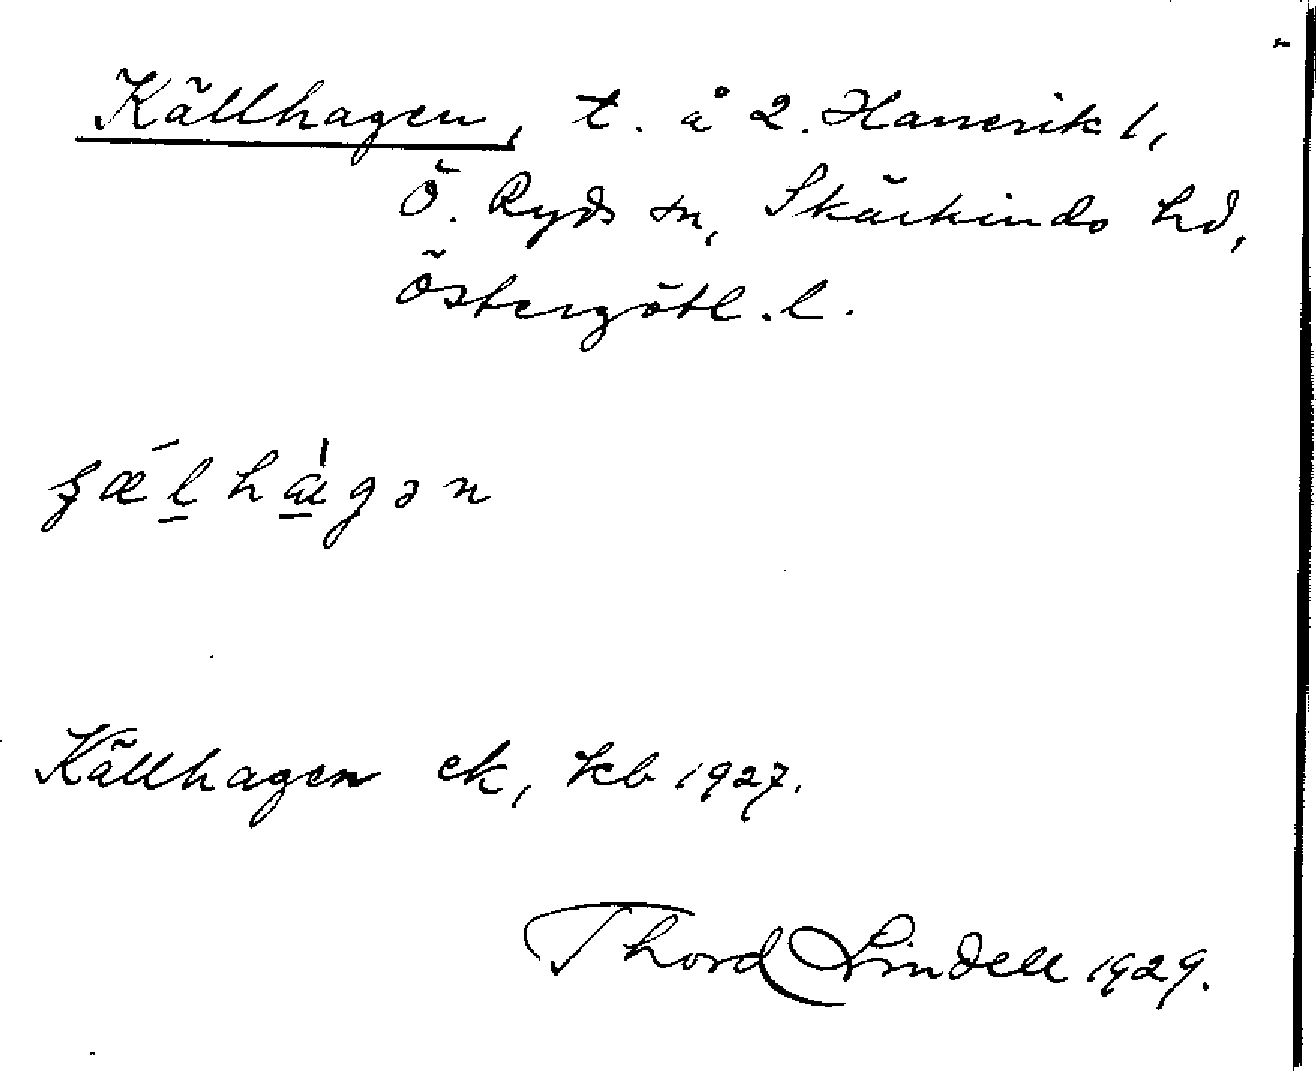 Källhagen, t. å 2. Hanerik 1,
Ö. Ryds sn, Skärkinds hd,
Östergötl. l.
Källhagen ek, kb 1927.
Thord Lindell 1929.